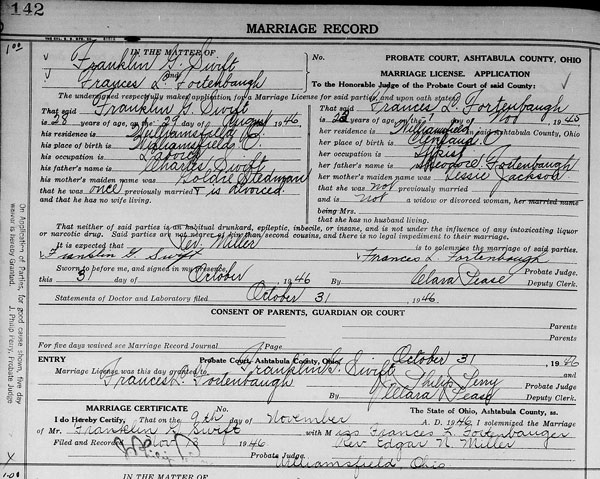 142
MARRIAGE RECORD
IN THE MATTER OF
Franklin G. Swift
and
Frances L. Fortenbaugh
The undersigned respectfully makes application for a Marriage License for said parties, and upon oath states:
That said Franklin G. Swift
is 28 years of age, on the 29 day of August 1946,
his residence is Williamsfield, O.
his place of birth is Williamsfield, O.
his occupation is Laborer
his father's name is Charles Swift
his mother's maiden name was Stedman
that he was once previously married & is divorced.
and that he has no wife living.
No. PROBATE COURT, ASHTABULA COUNTY, OHIO
MARRIAGE LICENSE. APPLICATION
To the Honorable Judge of the Probate Court of said County:
That said Frances L. Fortenbaugh
is 23 years of age, on the 7 day of Nov 1945
her residence is Williamsfield in said Ashtabula County, Ohio
her place of birth is Cleveland, O.
her occupation is Typist
her father's name is Theodore Fortenbaugh
her mother's maiden name was Jessie Jackson
that she was not previously married
and is not a widow or divorced woman, her married name
being Mrs.
that she has no husband living.
That neither of said parties is an habitual drunkard, epileptic, imbecile, or insane, and is not under the influence of any intoxicating liquor
or narcotic drug. Said parties are not nearer of kin than second cousins, and there is no legal impediment to their marriage.
It is expected that Rev. Miller is to solemnize the marriage of said parties.
Franklin G. Swift Frances L. Fortenbaugh
Sworn to before me, and signed in my presence,
Probate Judge.
this 31 day of October, 1946 By Clara Pease Deputy Clerk.
Statements of Doctor and Laboratory filed October 31 1946.
CONSENT OF PARENTS, GUARDIAN OR COURT
Parents
Parents
For five days waived see Marriage Record Journal Page
ENTRY Probate Court, Ashtabula County, Ohio October 31 1946
Marriage License was this day granted to Franklin G. Swift and
Frances L. Fortenbaugh J. Philip Perry Probate Judge
By Clara Pease Deputy Clerk.
MARRIAGE CERTIFICATE No. The State of Ohio, Ashtabula County, ss.
I do Hereby Certify, That on the 9th day of November A. D. 1946, I solemnized the Marriage
of Mr. Franklin G. Swift with Miss Frances L. Fortenbauger
Filed and Recorded Nov 1946 Rev. Edgar N. Miller
Probate Judge. Williamsfield, Ohio
IN THE MATTER OF
On Application of Parties, for good cause shown, five day
waiver is hereby Granted. J. Philip Perry, Probate Judge